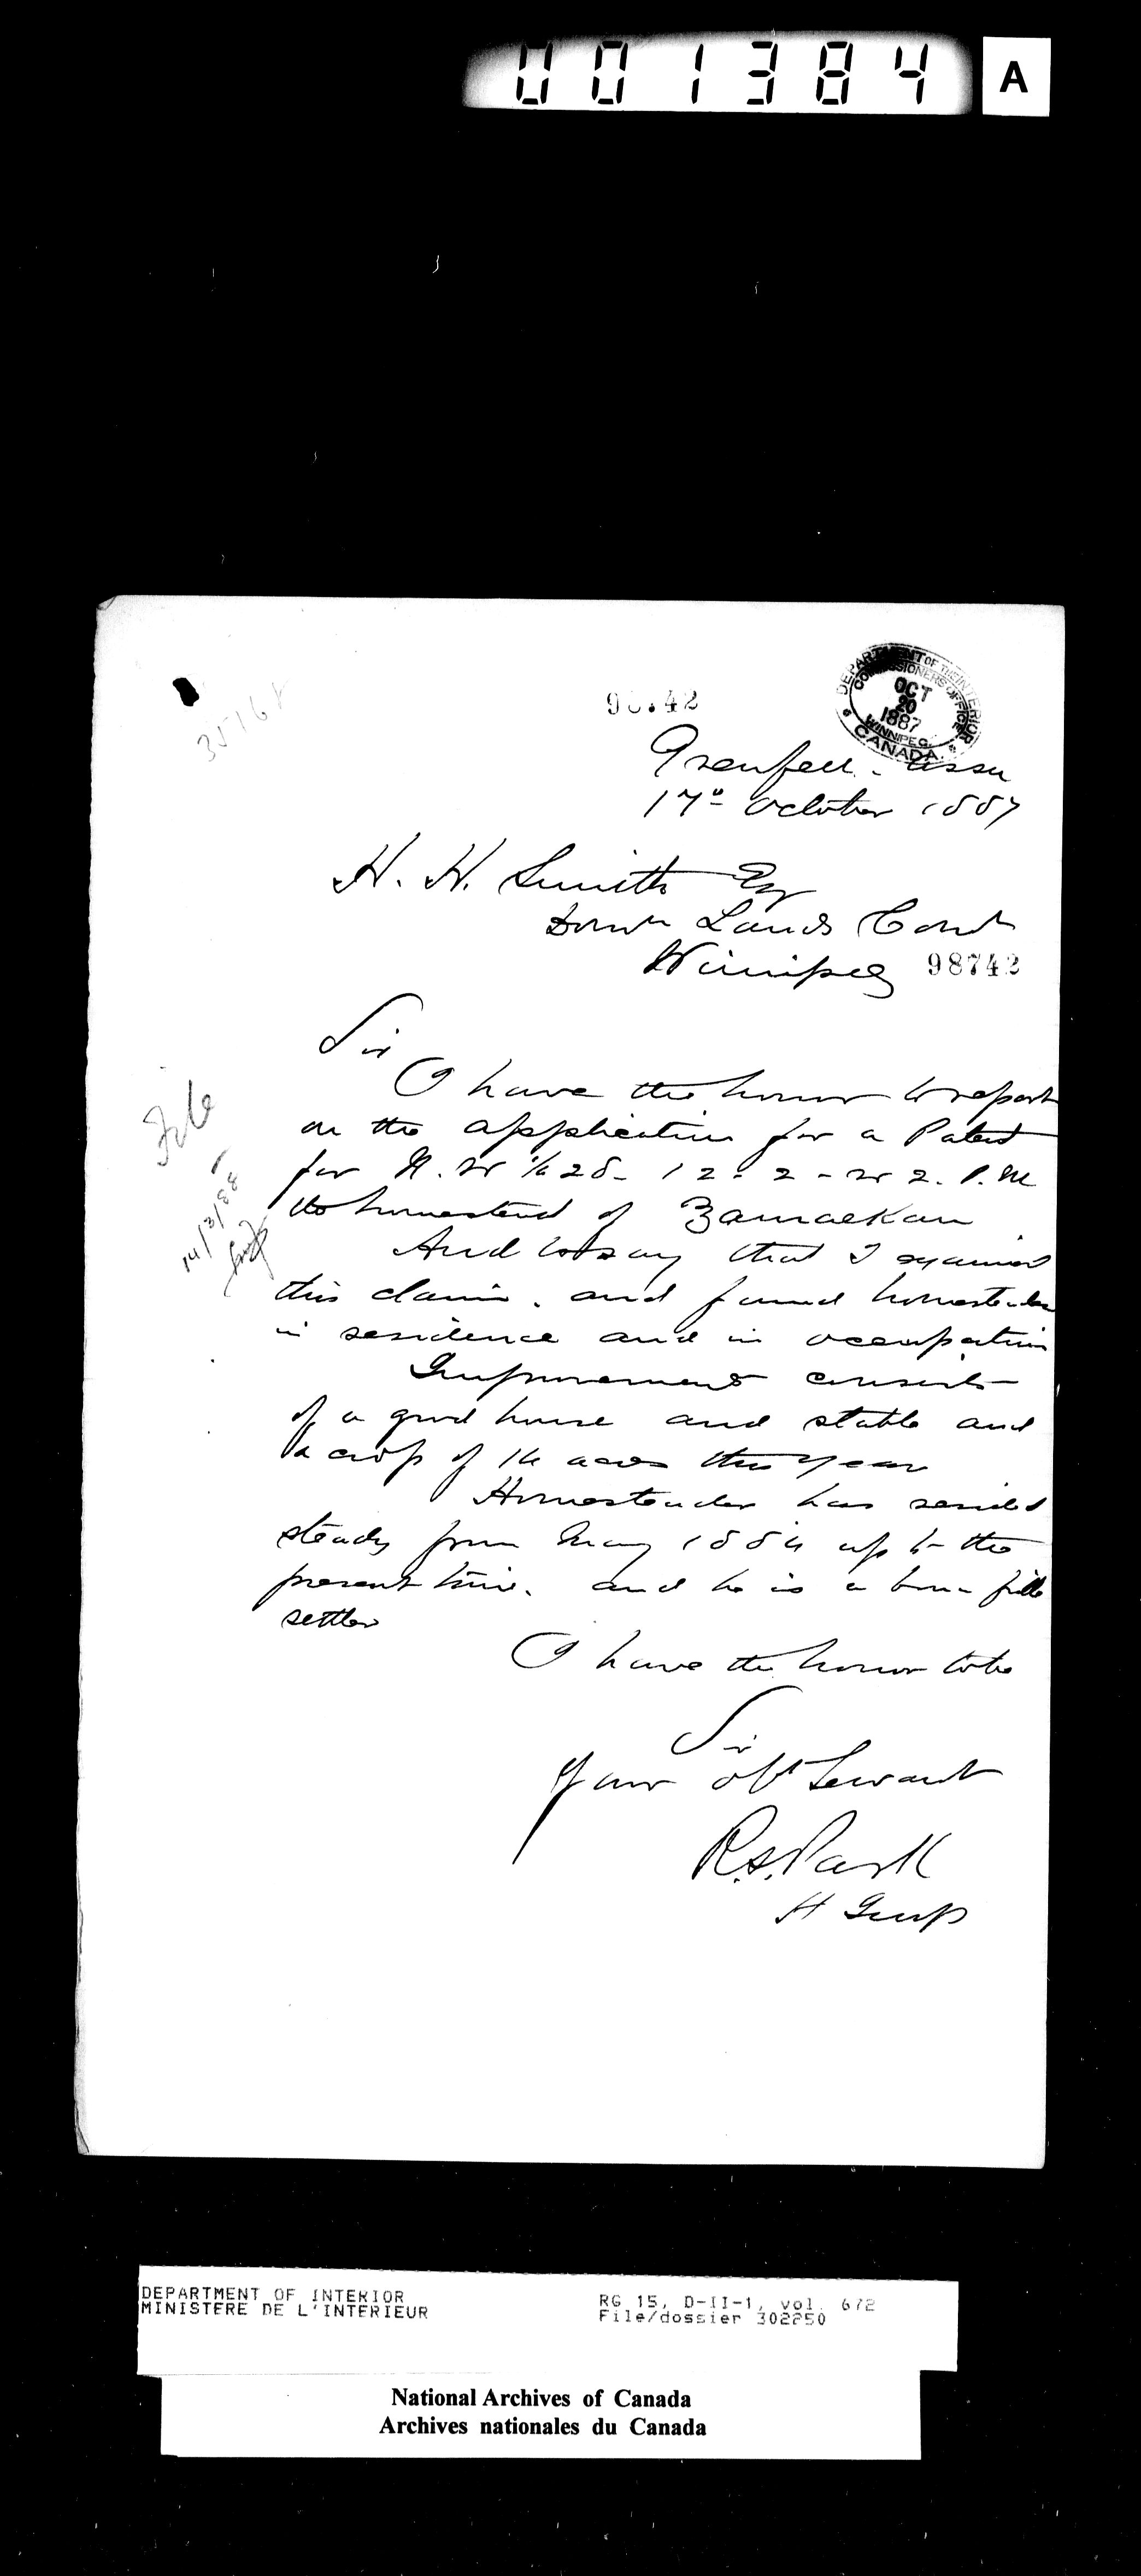 001384 A
35168
98742
DEPARTMENT OF THE INTERIOR
COMMISSIONERS OFFICE
OCT
20
1887
WINNIPEG
CANADA
Grenfell. Assa
17º October 1887
H. H. Smith Esq
Domn Lands Comr
Winnipeg 98742
Sir
I have the honor to report
on the application for a Patent
for N. W 1/4 28 - 12 - 2 - W 2. P. M
the homestead of
And to say that I examined
this claim. and found homesteader
in residence and in occupation
Improvements consist
of a good house and stable and
a crop of 14 acres this year
Homesteader has resided
steady from May 1884 up to the
present time. and he is a bona fide
settler
I have the honor to be
Sir
Your obt Servant
R.S. Park
H Insp
File
14/3/88
DEPARTMENT OF INTERIOR
MINISTERE DE L'INTERIEUR
RG 15, D-II-1, vol. 672
File/dossier 302250
National Archives of Canada
Archives nationales du Canada